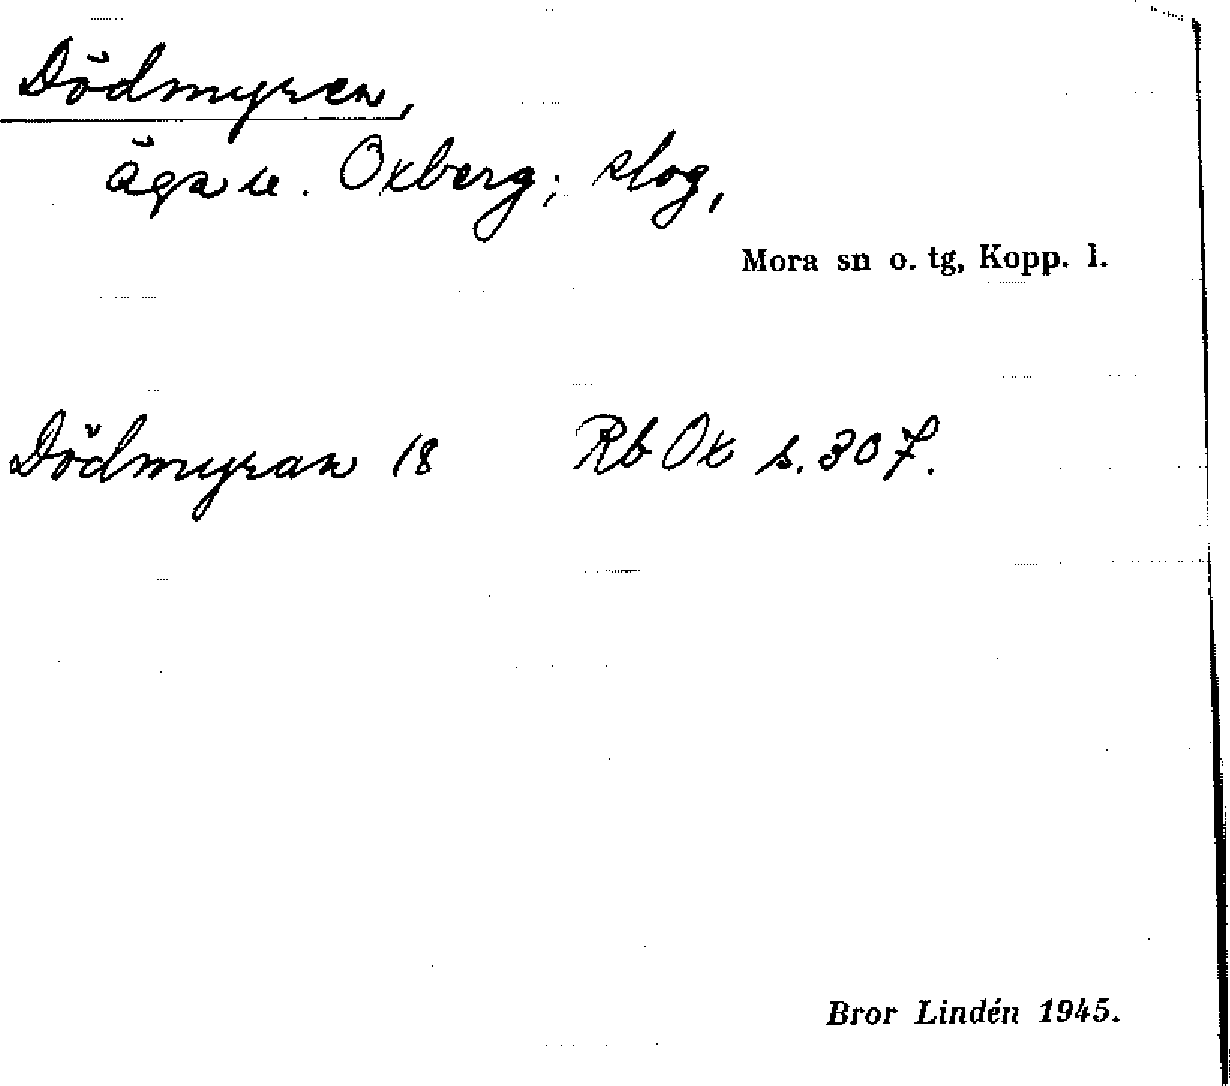 Dödmyren,
ägor u. Oxberg; slog,
Mora sn o. tg, Kopp. l.
Dödmyran 18 Rb Ox s. 307.
Bror Lindén 1945.